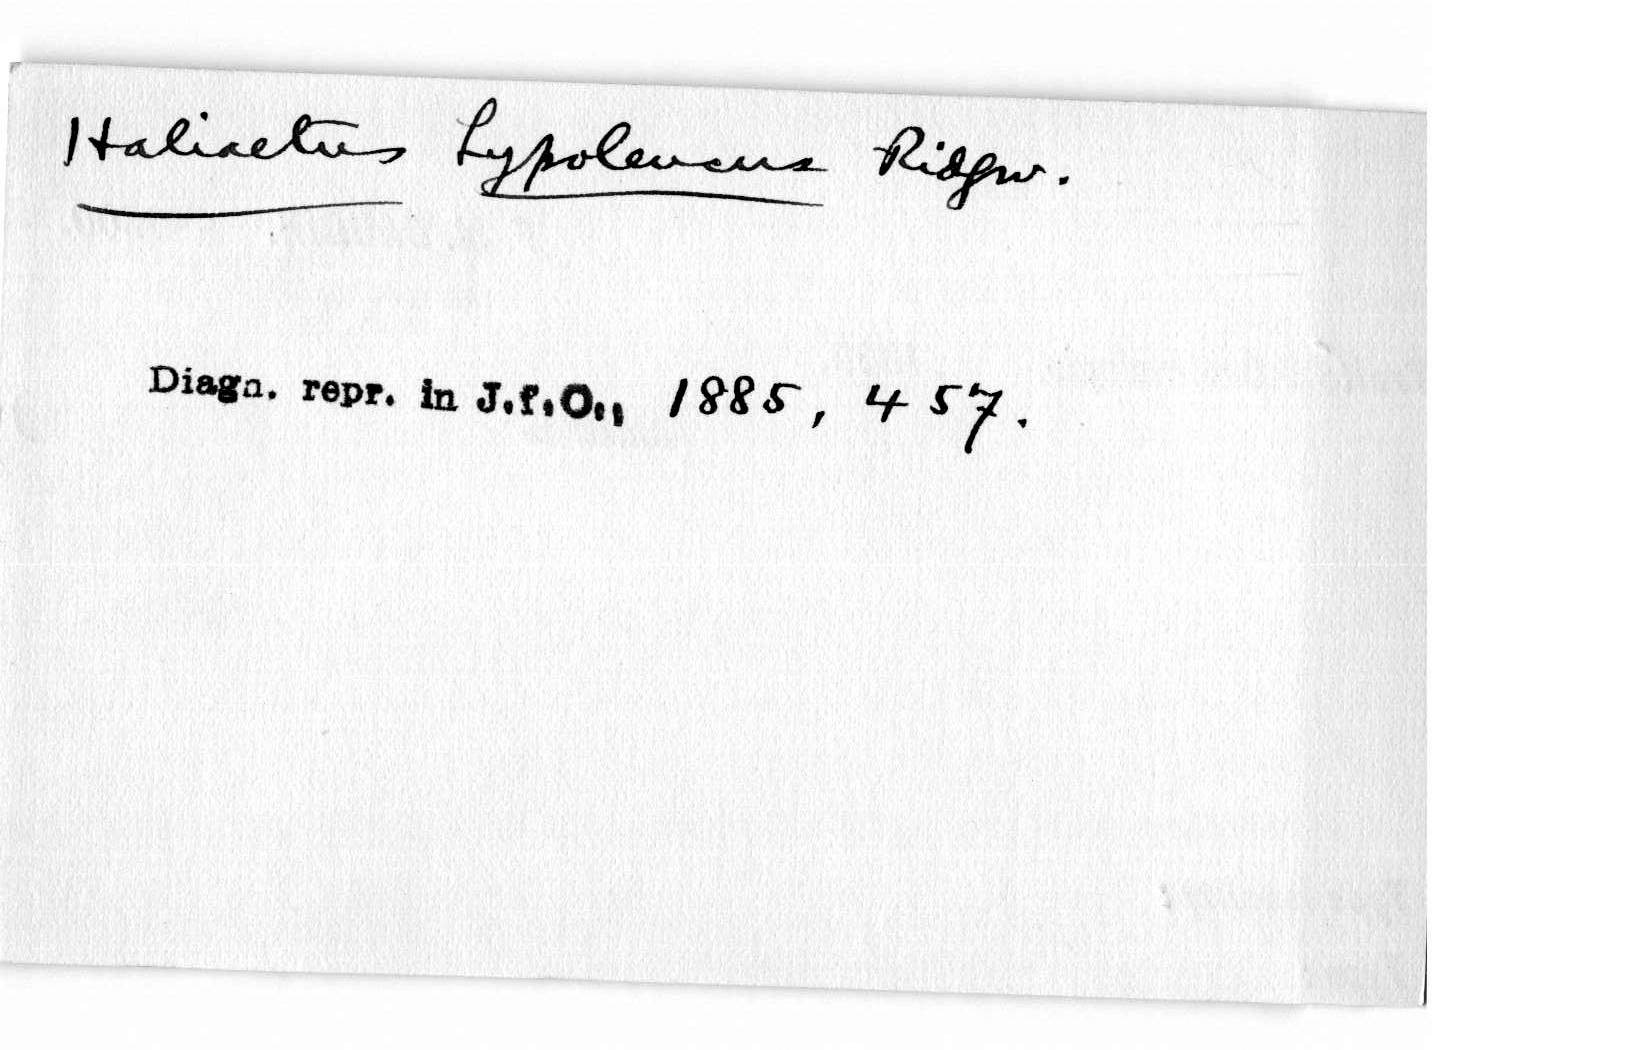 Haliaetus hypoleucus Ridgw.
Diagn. repr. in J.f.O., 1885, 457.